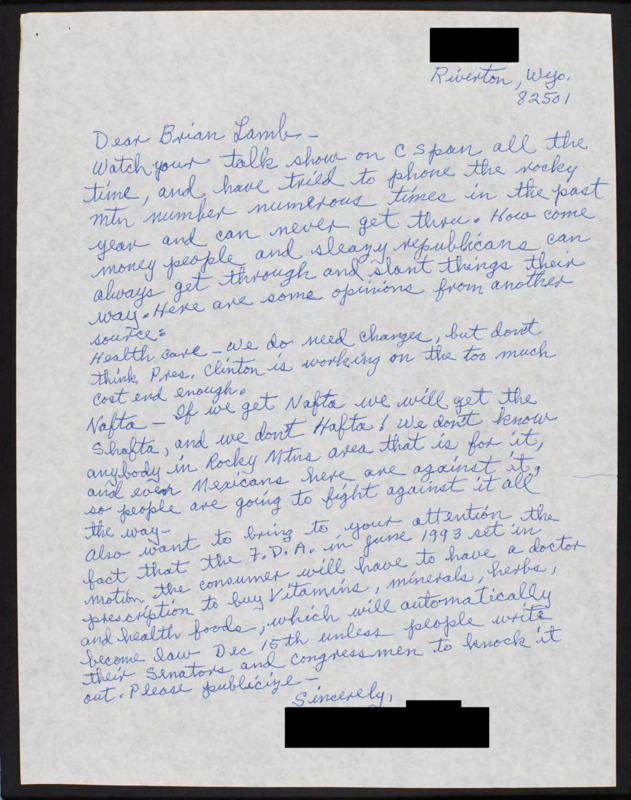 Riverton, Wyo.
82501
Dear Brian Lamb -
Watch your talk show on C Span all the
time, and have tried to phone the rocky
mtn number numerous times in the past
year and can never get thru. How come
money people and sleazy republicans can
always get through and slant things their
way. Here are some opinions from another
source:
Health care - We do need changes, but dont
think Pres. Clinton is working on the too much
cost end enough.
Nafta - If we get Nafta we will get the
Shafta, and we dont Hafta! We dont know
anybody in Rocky Mtns area that is for it,
and even Mexicans here are against it,
so people are going to fight against it all
the way -
Also want to bring to your attention the
fact that the F.D.A. in June 1993 set in
motion the consumer will have to have a doctor
prescription to buy Vitamins, minerals, herbs,
and health foods, which will automatically
become law Dec 15th unless people write
their Senators and congressmen to knock it
out. Please publicize -
Sincerely,